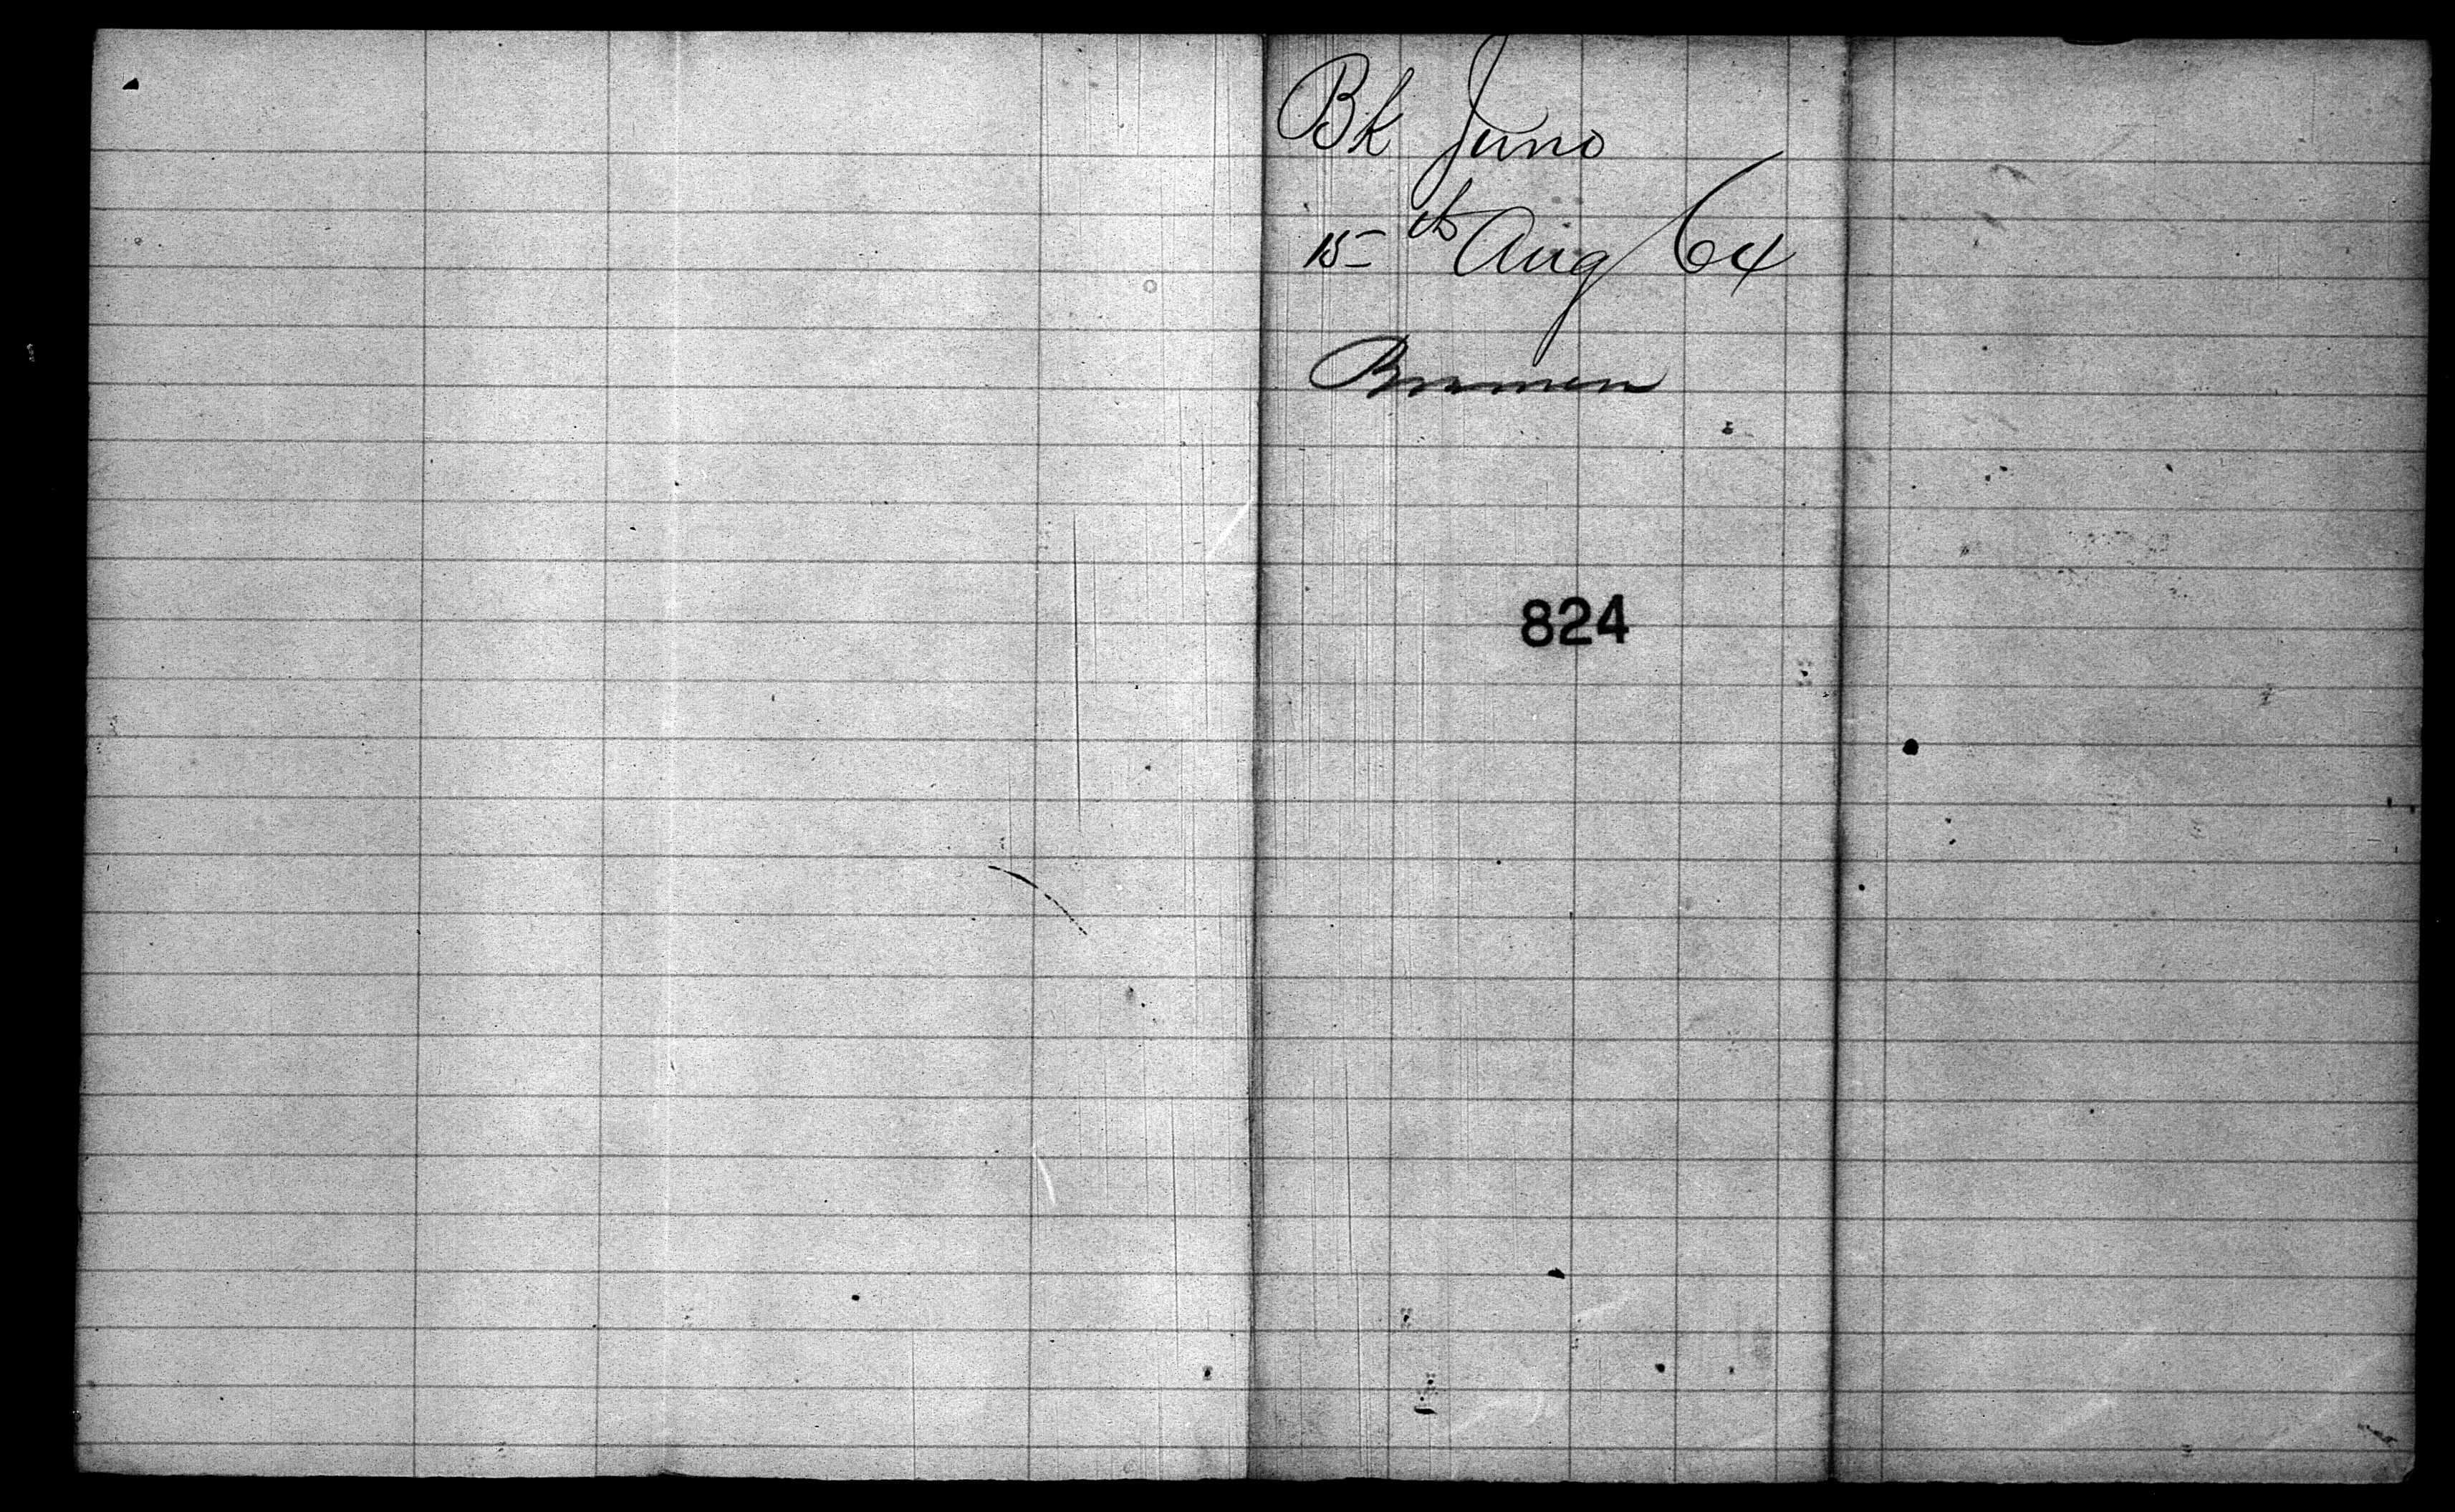 Bk Juno
15th Aug 64
Bremen
824